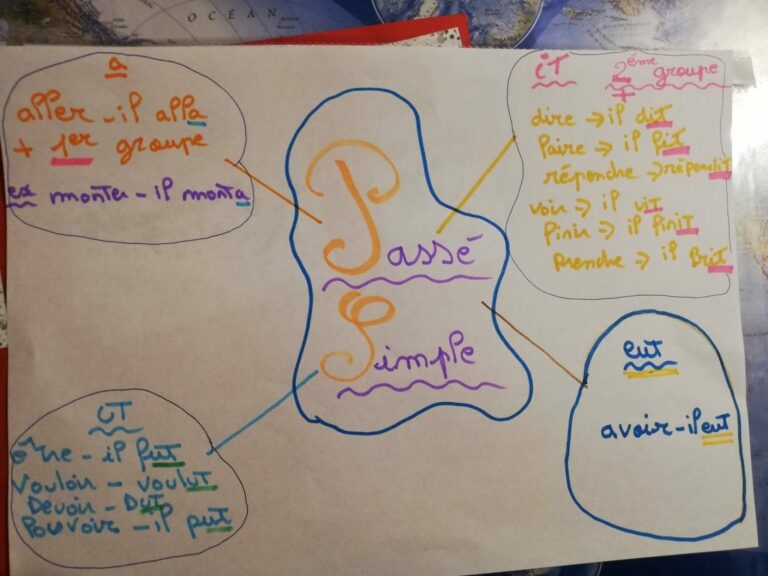 OCÉAN
a
aller - il alla
+ 1er groupe
ex monter - il monta
Passé
Simple
iT 2ème groupe
+
dire → il dit
faire → il fit
répondre → répondit
voir → il vit
finir → il finit
prendre → il prit
UT
être - il fut
Vouloir - voulut
Devoir - Dut
Pouvoir - il put
eut
avoir - il eut